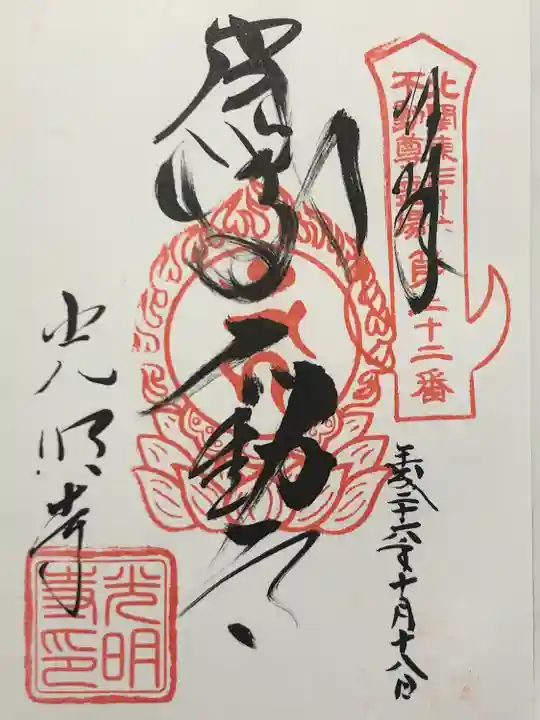 奉拝
北関東三十六
不動尊霊場
第二十二番
平成二十六年十月十八日
不動尊
光明寺
光明
寺印